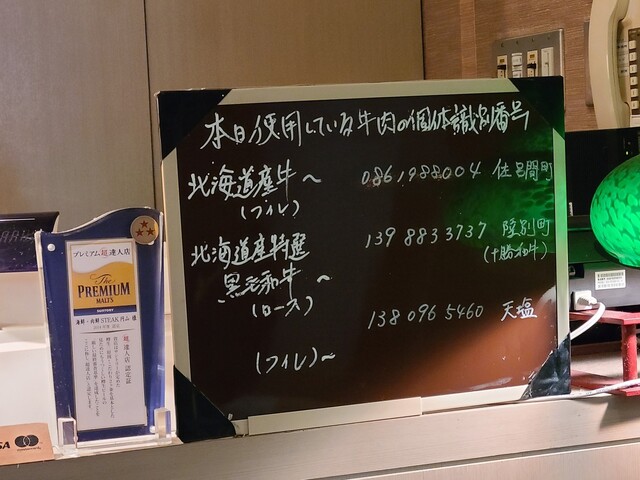 本日使用している牛肉の個体識別番号
北海道産牛～ 0861988004 佐呂間町
(フィレ)
北海道産特選 1398833737 陸別町
黒毛和牛～ (十勝和牛)
(ロース)
1380965460 天塩
(フィレ)～
プレミアム超達人店
The
PREMIUM
MALT'S
SUNTORY
海鮮・肉鮮 STEAK 円山 様
超達人店 認定証